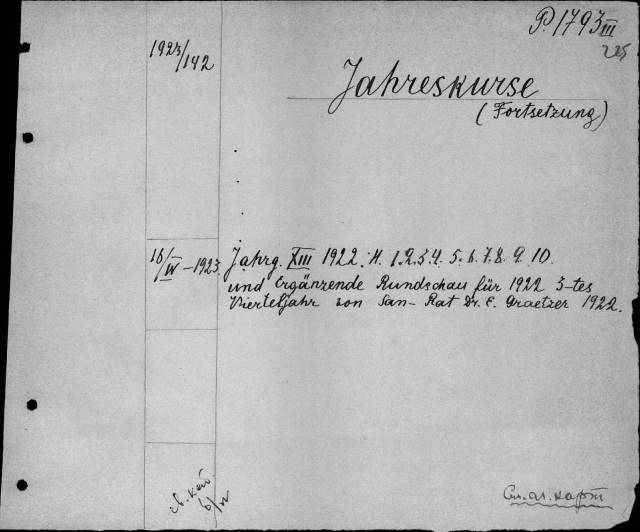 P. 1793 III
225
1923/142
Jahreskurse
(Fortsetzung)
16/IV – 1923. Jahrg. XIII 1922. H. 1.2.3.4. 5. 6. 7.8. 9. 10.
und Ergänzende Rundschau für 1922 3-tes
Vierteljahr von San- Rat Dr. E. Graetzer 1922.
См. др. карт